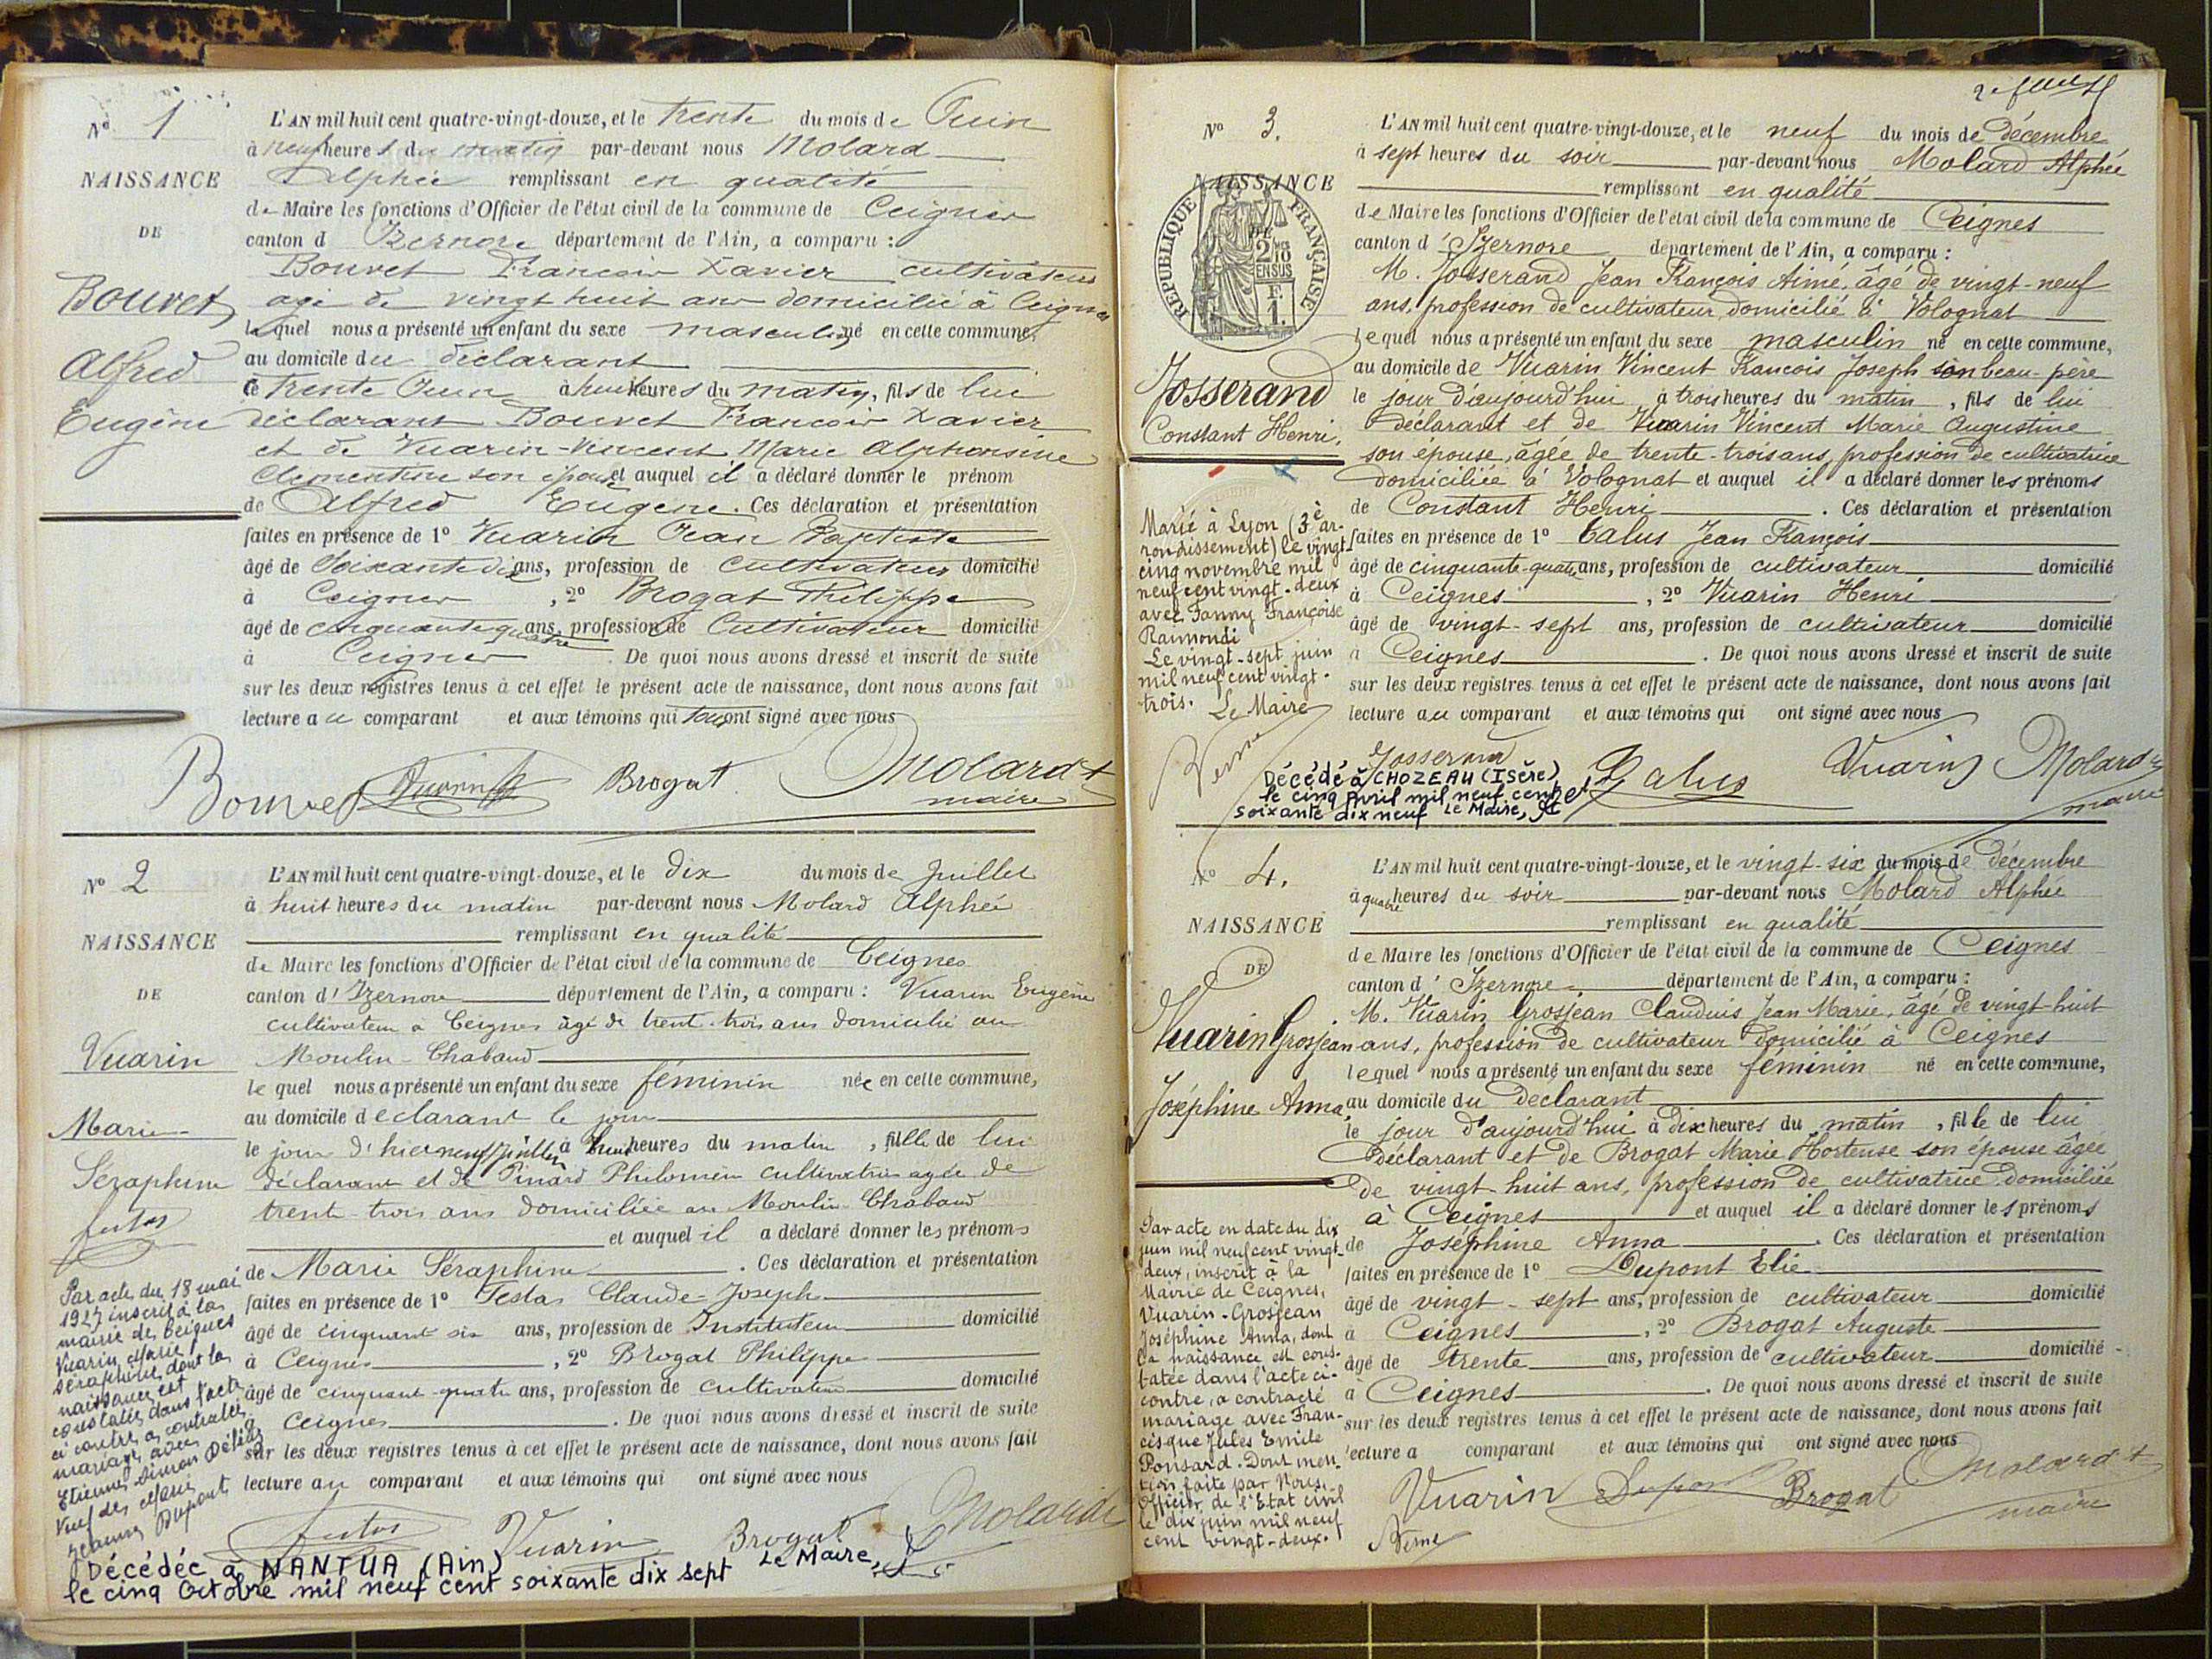 No 1
NAISSANCE
DE
Bouvet
Alfred
Eugène
L'AN mil huit cent quatre-vingt-douze, et le trente du mois de Juin
à neuf heures du matin par-devant nous Molard
Alphée remplissant en qualité
de Maire les fonctions d'Officier de l'état civil de la commune de Ceignes
canton d Izernore département de l'Ain, a comparu :
Bouvet Francois Xavier cultivateur
agé de vingt huit ans domicilié à Ceignes
lequel nous a présenté un enfant du sexe masculin né en cette commune,
au domicile du déclarant
le trente Juin à huit heures du matin, fils de lui
déclarant Bouvet Francois Xavier
et de Vuarin-Vincent Marie Alphonsine
Clementine son épouse et auquel il a déclaré donner le prénom
de Alfred Eugène. Ces déclaration et présentation
faites en présence de 1º Vuarin Jean Baptiste
âgé de Soixante dix ans, profession de Cultivateur domicilié
à Ceignes, 2º Brogat Philippe
âgé de cinquante quatre ans, profession de Cultivateur domicilié
à Ceignes. De quoi nous avons dressé et inscrit de suite
sur les deux registres tenus à cet effet le présent acte de naissance, dont nous avons fait
lecture au comparant et aux témoins qui tous ont signé avec nous
Bouvet Vuarin Brogat Molard
maire
No 2
NAISSANCE
DE
Vuarin
Marie
Séraphine
L'AN mil huit cent quatre-vingt-douze, et le dix du mois de Juillet
à huit heures du matin par-devant nous Molard Alphée
remplissant en qualité
de Maire les fonctions d'Officier de l'état civil de la commune de Ceignes
canton d'Izernore département de l'Ain, a comparu : Vuarin Eugène
cultivateur à Ceignes âgé de trente-trois ans domicilié au
Moulin-Chabaud
lequel nous a présenté un enfant du sexe féminin née en cette commune,
au domicile déclarant le jour
le jour d'hier neuf juillet à huit heures du matin, fille de lui
déclarant et de Pinard Philomène cultivatrice agée de
trente-trois ans domiciliée au Moulin-Chabaud
et auquel il a déclaré donner les prénoms
de Marie Séraphine. Ces déclaration et présentation
faites en présence de 1º Claude-Joseph
âgé de cinquante six ans, profession de Instituteur domicilié
à Ceignes, 2º Brogat Philippe
âgé de cinquante-quatre ans, profession de cultivateur domicilié
à Ceignes. De quoi nous avons dressé et inscrit de suite
sur les deux registres tenus à cet effet le présent acte de naissance, dont nous avons fait
lecture au comparant et aux témoins qui ont signé avec nous
Vuarin Brogat Molard
Par acte du 18 mai
1927 inscrit à la
mairie de Ceignes
Vuarin Marie
Séraphine dont la
naissance est
constatée dans l'acte
ci contre, a contracté
mariage avec
Etienne Simon
Veuf de Marie
Jeanne Dupont
Décédée à NANTUA (Ain)
le cinq Octobre mil neuf cent soixante dix sept Le Maire,
No 3.
NAISSANCE
DE
RÉPUBLIQUE FRANÇAISE
2/10 EN SUS
F. 1.
Josserand
Constant Henri.
L'AN mil huit cent quatre-vingt-douze, et le neuf du mois de décembre
à sept heures du soir par-devant nous Molard Alphée
remplissant en qualité
de Maire les fonctions d'Officier de l'état civil de la commune de Ceignes
canton d'Izernore département de l'Ain, a comparu :
M. Josserand Jean François Aimé, âgé de vingt-neuf
ans, profession de cultivateur domicilié à Volognat
lequel nous a présenté un enfant du sexe masculin né en cette commune,
au domicile de Vuarin Vincent Francois Joseph son beau-père
le jour d'aujourd'hui à trois heures du matin, fils de lui
Déclarant et de Vuarin Vincent Marie Augustine
son épouse, âgée de trente-trois ans, profession de cultivatrice
domiciliée à Volognat et auquel il a déclaré donner les prénoms
de Constant Henri. Ces déclaration et présentation
faites en présence de 1º Calus Jean François
âgé de cinquante-quatre ans, profession de cultivateur domicilié
à Ceignes, 2º Vuarin Henri
âgé de vingt-sept ans, profession de cultivateur domicilié
à Ceignes. De quoi nous avons dressé et inscrit de suite
sur les deux registres tenus à cet effet le présent acte de naissance, dont nous avons fait
lecture au comparant et aux témoins qui ont signé avec nous
Josserand Calus Vuarin Molard
maire
Marié à Lyon (3è ar-
rondissement) le vingt
cinq novembre mil
neuf cent vingt-deux
avec Fanny Françoise
Raimondi
Le vingt-sept juin
mil neuf cent vingt-
trois. Le Maire
Décédé à CHOZEAU (Isère)
le cinq Avril mil neuf cent
soixante dix neuf Le Maire,
No 4.
NAISSANCE
DE
Vuarin Grosjean
Joséphine Anna
L'AN mil huit cent quatre-vingt-douze, et le vingt-six du mois de décembre
à quatre heures du soir par-devant nous Molard Alphée
remplissant en qualité
de Maire les fonctions d'Officier de l'état civil de la commune de Ceignes
canton d'Izernore département de l'Ain, a comparu :
M. Vuarin Grosjean Claudius Jean Marie, âgé de vingt-huit
ans, profession de cultivateur domicilié à Ceignes
lequel nous a présenté un enfant du sexe féminin né en cette commune,
au domicile du Déclarant
le jour d'aujourd'hui à dix heures du matin, fille de lui
Déclarant et de Brogat Marie Hortense son épouse âgée
de vingt-huit ans, profession de cultivatrice domiciliée
à Ceignes et auquel il a déclaré donner les prénoms
de Joséphine Anna. Ces déclaration et présentation
faites en présence de 1º Dupont Elie
âgé de vingt-sept ans, profession de cultivateur domicilié
à Ceignes, 2º Brogat Auguste
âgé de trente ans, profession de cultivateur domicilié
à Ceignes. De quoi nous avons dressé et inscrit de suite
sur les deux registres tenus à cet effet le présent acte de naissance, dont nous avons fait
lecture a comparant et aux témoins qui ont signé avec nous
Vuarin Dupont Brogat Molard
maire
Par acte en date du dix
juin mil neuf cent vingt-
deux, inscrit à la
Mairie de Ceignes,
Vuarin-Grosjean
Joséphine Anna, dont
la naissance est cons-
tatée dans l'acte ci-
contre, a contracté
mariage avec Fran-
cisque Jules Emile
Ponsard. Dont men-
tion faite par Nous,
Officier de l'Etat civil
le dix juin mil neuf
cent vingt-deux.